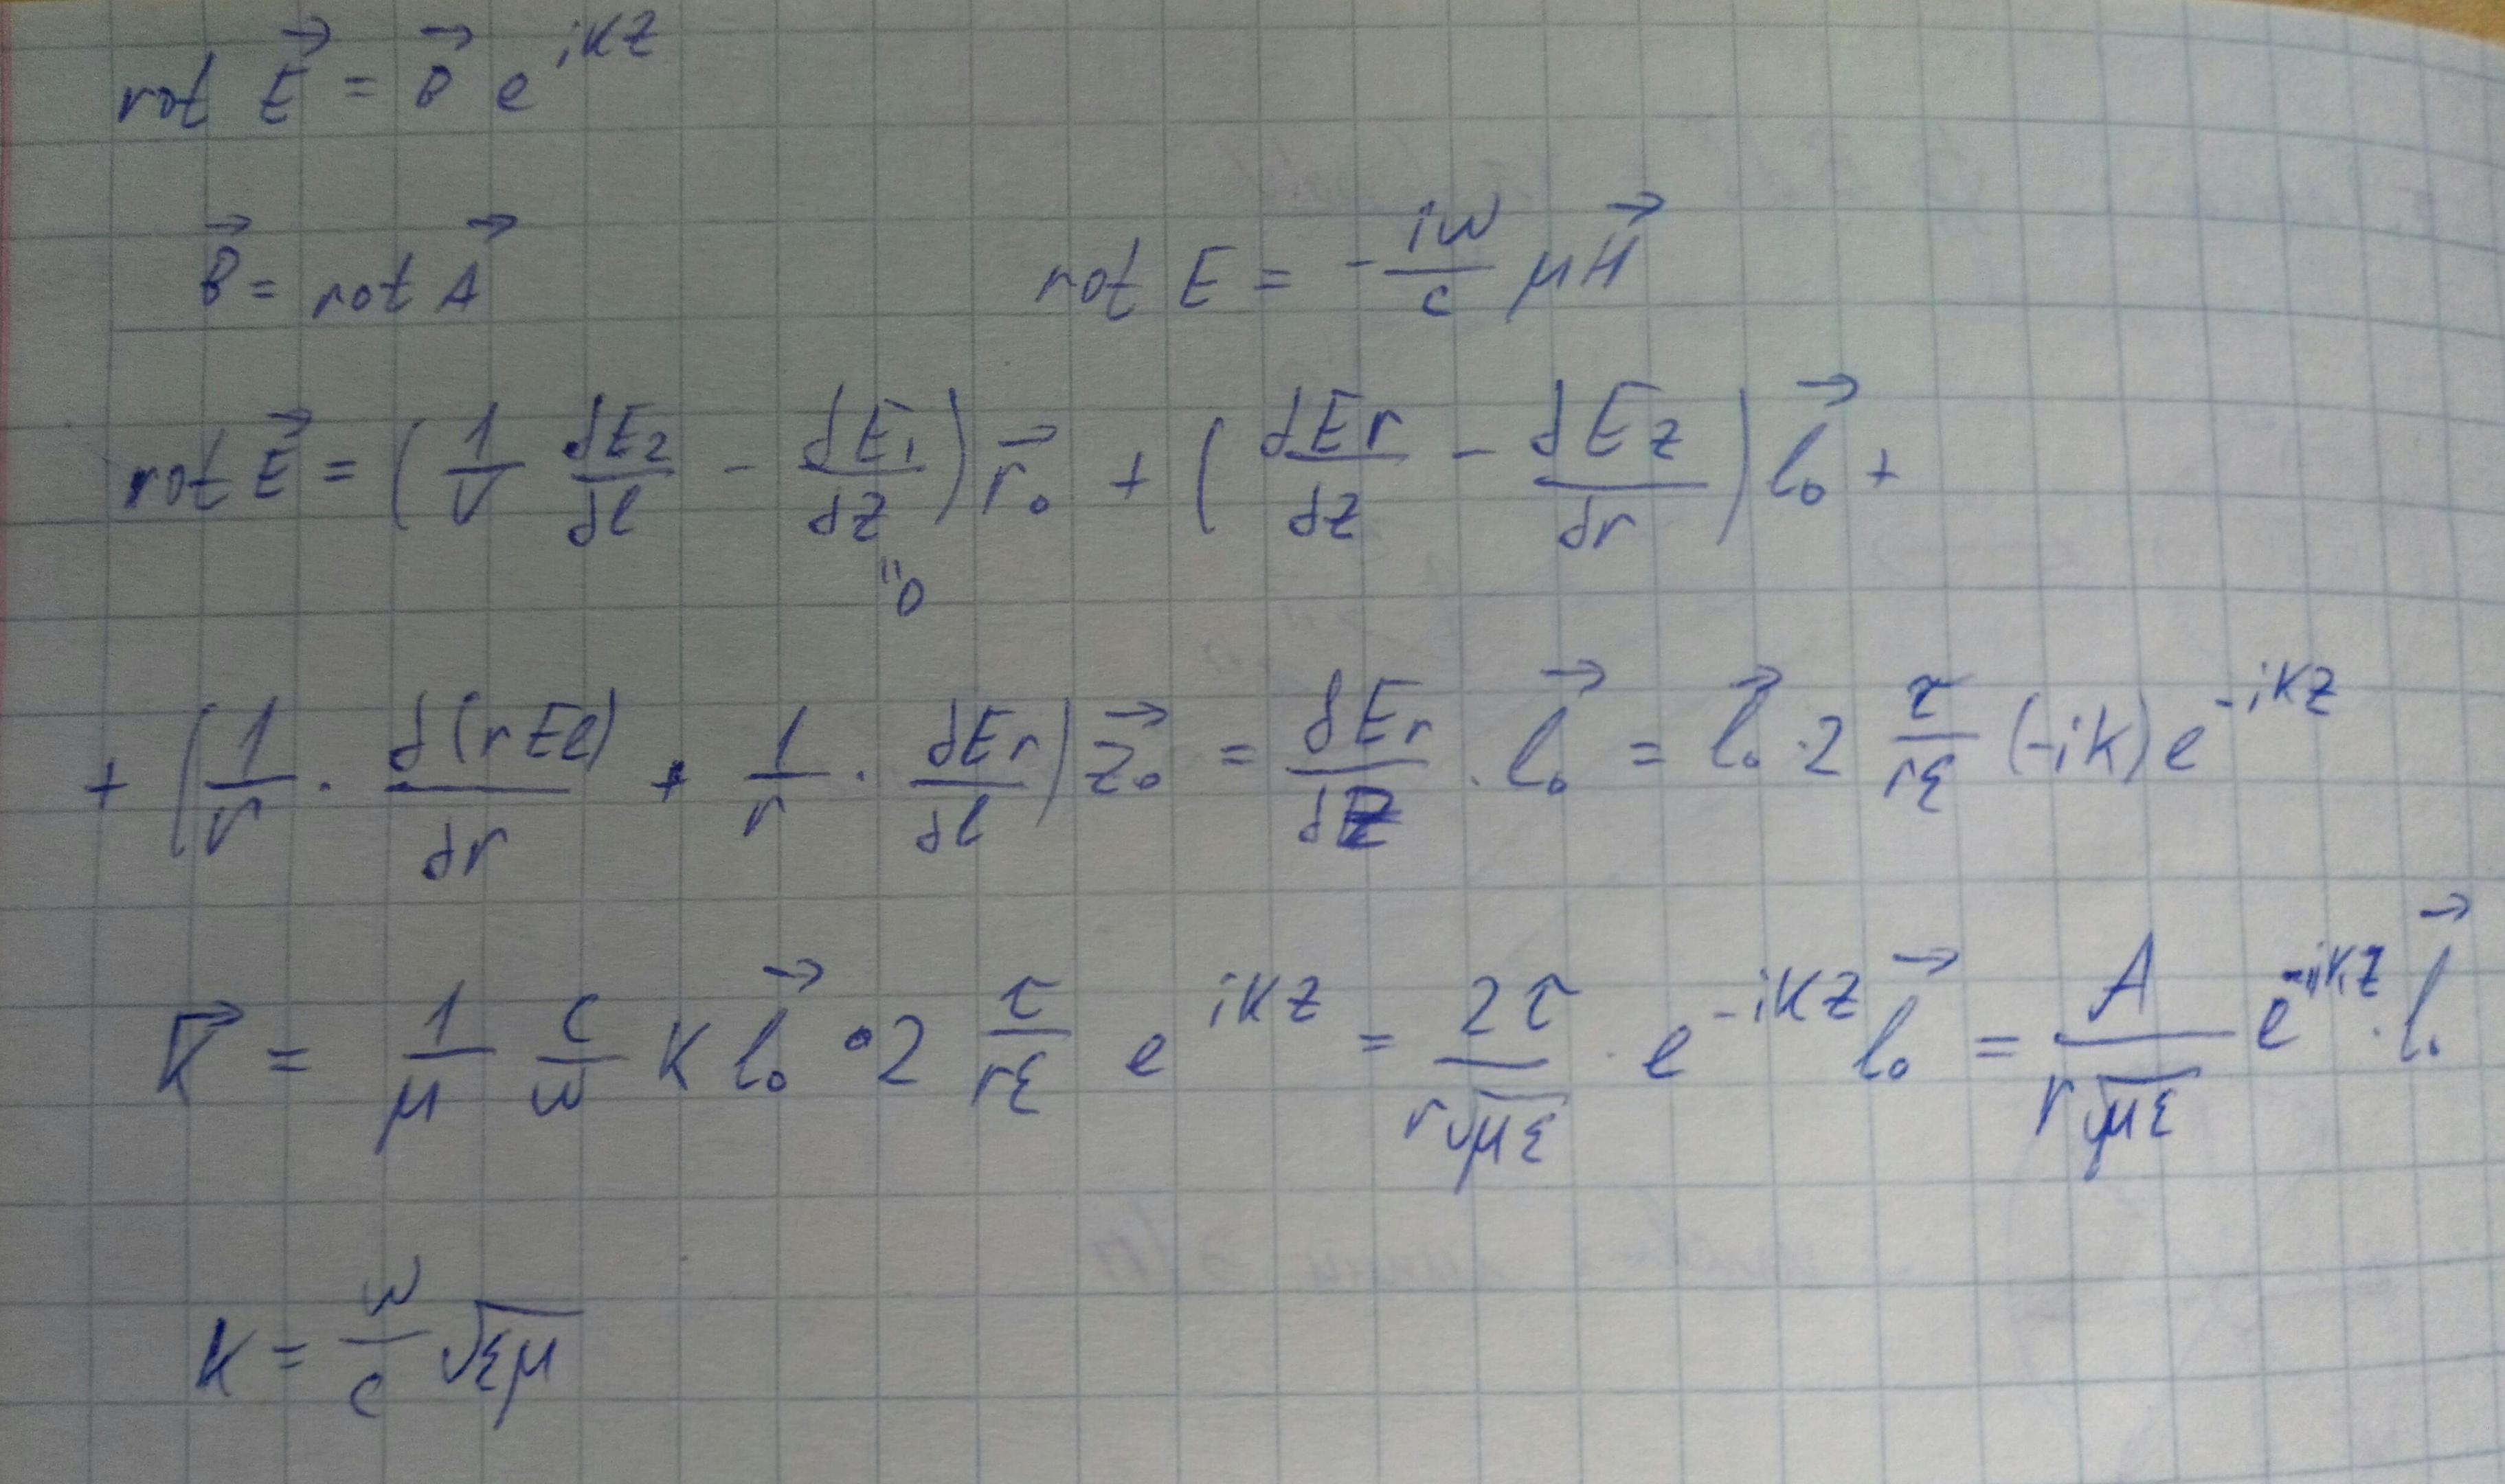 rot E⃗ = B⃗ e^{ikz}
B⃗ = rot A⃗ rot E = - iω/c μH⃗
rot E⃗ = (1/r dE₂/dl - dE₁/dz) r⃗₀ + (dEr/dz - dEz/dr) l⃗₀ +
"0
+ (1/r · d(rEl)/dr + 1/r · dEr/dl) z⃗₀ = dEr/dz · l⃗₀ = l⃗₀ · 2 τ/(rε) (-ik) e^{-ikz}
K⃗ = 1/μ c/ω K l⃗₀ · 2 τ/(rε) e^{ikz} = 2τ/(r√με) · e^{-ikz} l⃗₀ = A/(r√με) e^{-ikz} · l⃗₀
K = ω/c √εμ